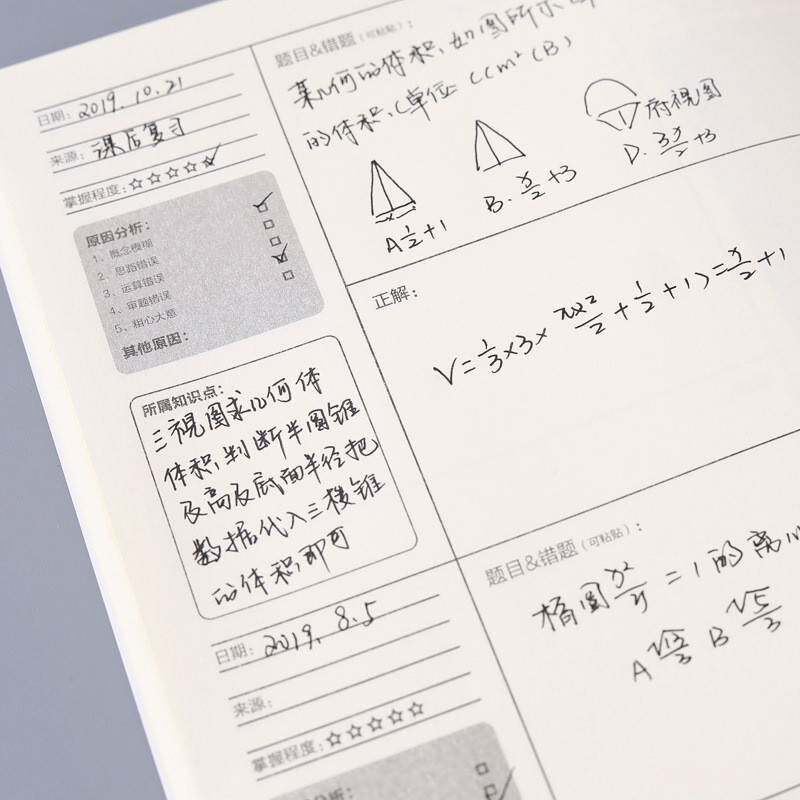 日期: 2019.10.21
来源: 课后复习
掌握程度: ☆☆☆☆☆
原因分析:
1、概念模糊
2、思路错误
3、运算错误
4、审题错误
5、粗心大意
其他原因:
所属知识点:
三视图求几何体
体积,判断半圆锥
及高及底面半径把
数据代入三棱锥
的体积即可
题目&错题(可粘贴):
某几何的体积,如图所示
的体积,(单位 cm² (B)
俯视图
A ½+1
B. π/2+3
D. 3π/2+3
正解:
V=⅓×3×(π×²/2+½+1)=π/2+1
日期: 2019. 8.5
来源:
掌握程度: ☆☆☆☆☆
分析:
题目&错题(可粘贴):
椭圆 =1的离心
A √13/3 B √5/3